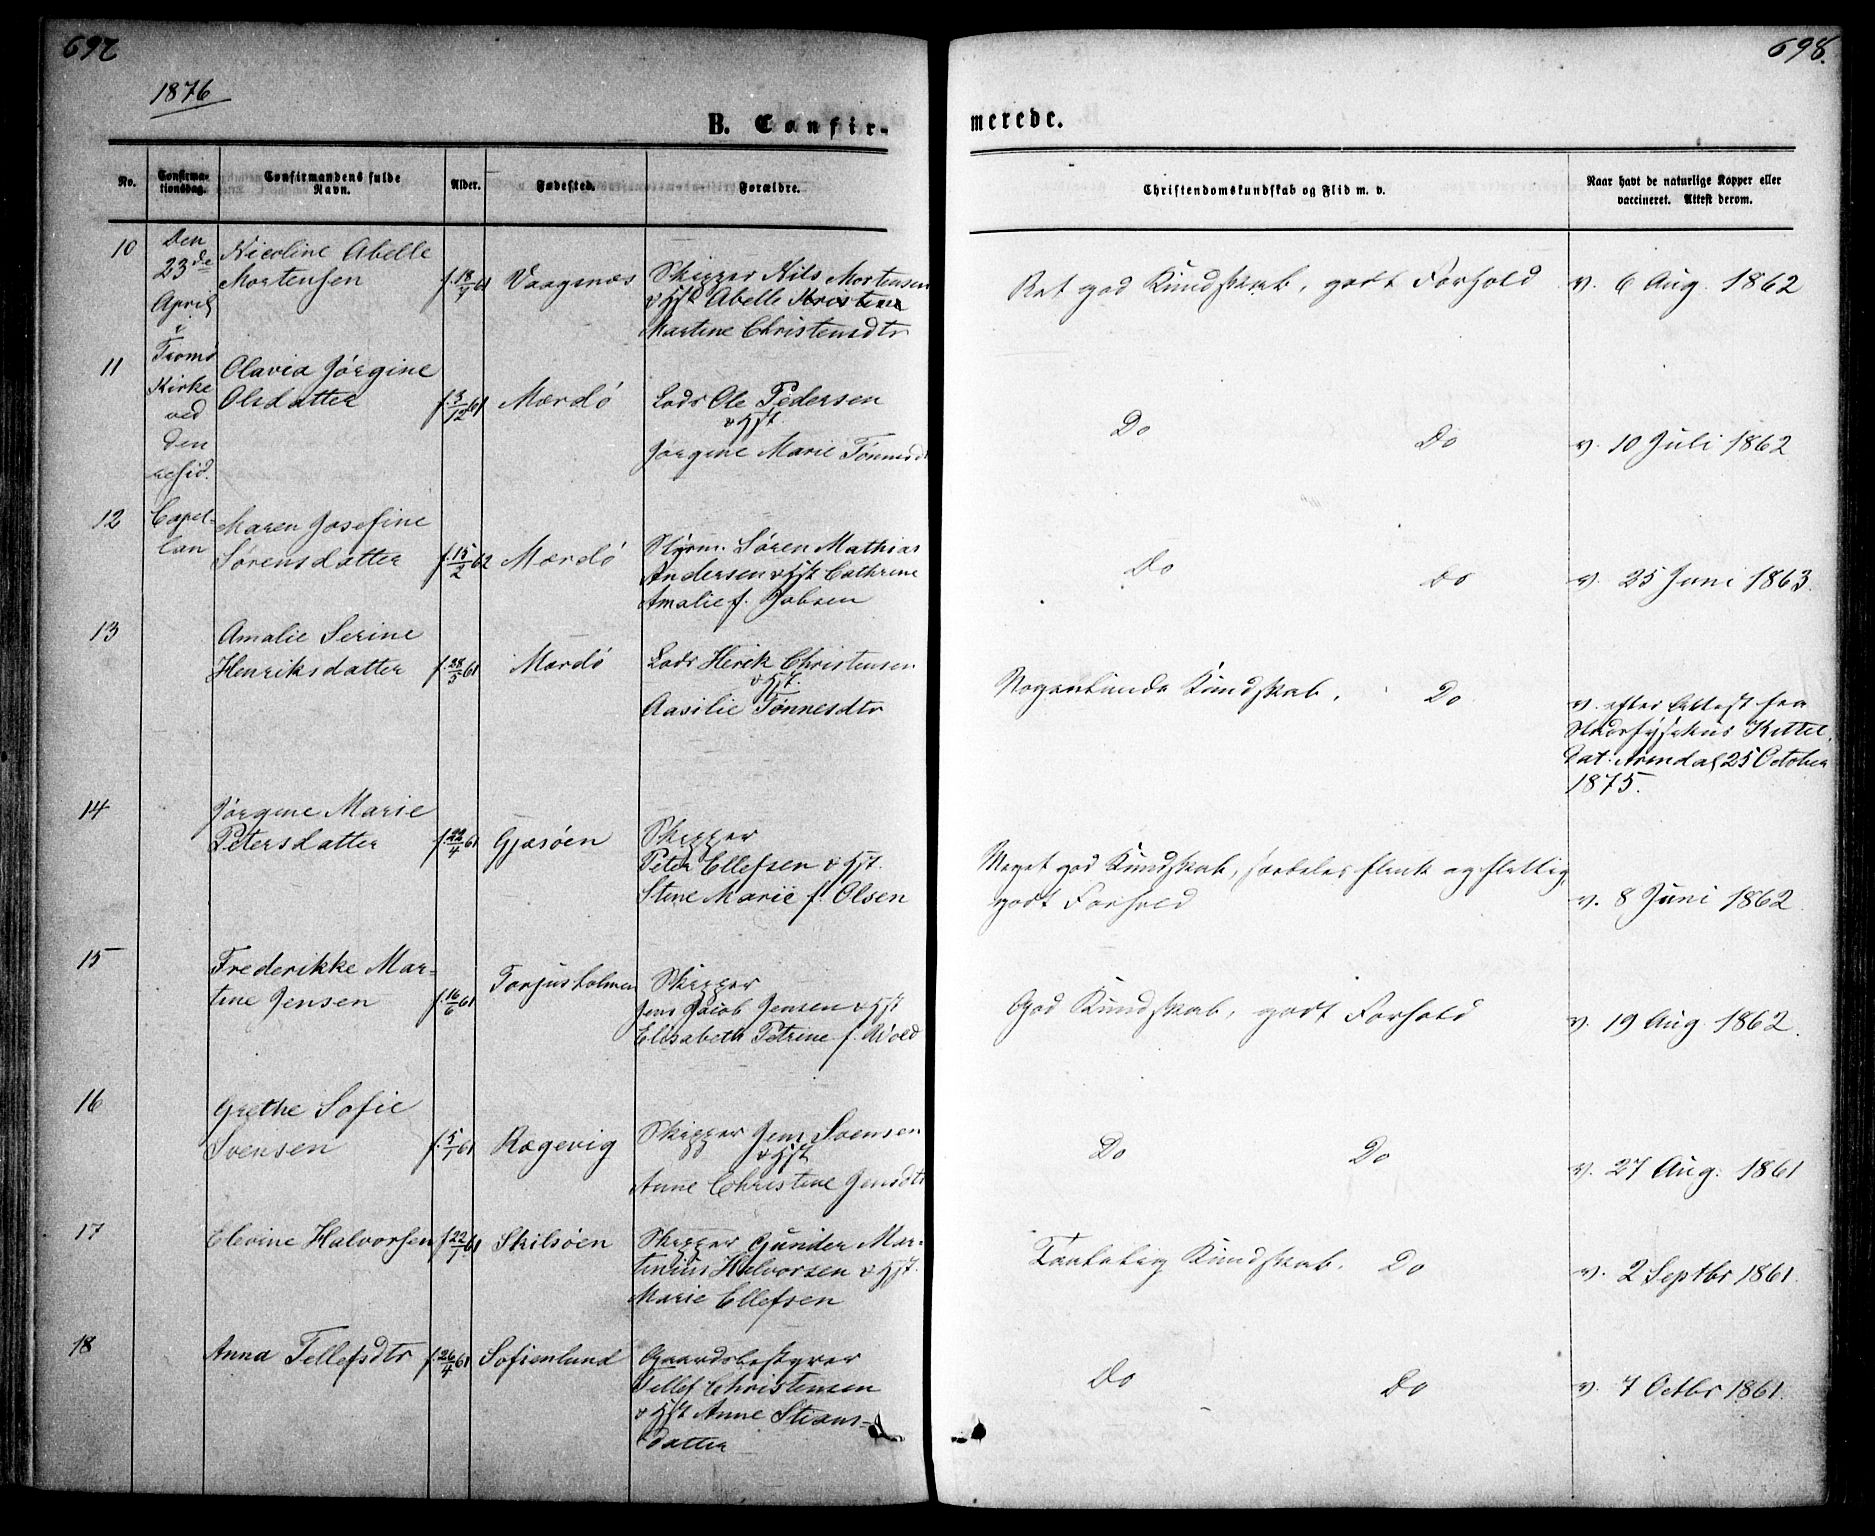 697
698.
1876
B. Confir-
merede.
No.
Confirma-
tionsdag.
Confirmandens fulde
Navn.
Alder.
Fødested.
Forældre.
Christendomskundskab og Flid m. v.
Naar havt de naturlige Kopper eller
vaccineret. Attest derom.
Den
23de
April
i
Tromø
Kirke
ved
den
resid.
Capel-
lan
10
Nicoline Abelle
Mortensen
f. 18/7 61
Vaagsnæs
Skipper Nils Mortensen
& Hst Abelle Kristine
Martine Christensdtr
Ret god Kundskab, godt Forhold
v. 6 Aug. 1862
11
Olavia Jørgine
Olsdatter
f. 3/12 61
Mærdø
Lods Ole Pedersen
& Hst
Jørgine Marie Tønnesdt
Do
Do
v. 10 Juli 1862
12
Maren Josefine
Sørensdatter
f. 15/2 62
Mærdø
Styrm. Søren Mathias
Andersen & Hst Cathrine
Amalie f. Jobsen
Do
Do
v. 25 Juni 1863.
13
Amalie Serine
Henriksdatter
f. 28/5 61
Mærdø
Lods Henrik Christensen
& Hst.
Aasilie Tønnesdtr
Nogenlunde Kundskab,
Do
v. efter Attest fra
Kittel,
Dat. Arendal 25 October
1875.
14
Jørgine Marie
Petersdatter
f. 22/4 61
Gjæsøen
Skipper
Peter Ellefsen & Hst.
Stine Marie f. Olsen
Meget god Kundskab, særdeles flink og flittig,
godt Forhold
v. 8 Juni 1862
15
Frederikke Mar-
tine Jensen
f. 16/6 61
Torjusholmen
Skipper
Jens Jacob Jensen & Hst
Elisabeth Petrine f. Wold
God Kundskab, godt Forhold
v. 19 Aug. 1862.
16
Grethe Sofie
Svensen
f. 5/1 61
Rægevig
Skipper Jens Svensen
& Hst
Anne Christine Jensdtr
Do
Do
v. 27 Aug. 1861
17
Elevine Halvorsen
f. 22/1 61
Skilsøen
Skipper Gunder Mar-
tinius Halvorsen & Hst.
Marie Ellefsen
Taalelig Kundskab.
Do
v. 2 Septbr 1861.
18
Anna Tellefsdtr
f. 26/4 61
Sofienlund
Gaardsbestyrer
Tellef Christensen
& Hst Anne Stians-
datter
Do
Do
v. 7 Octbr 1861.